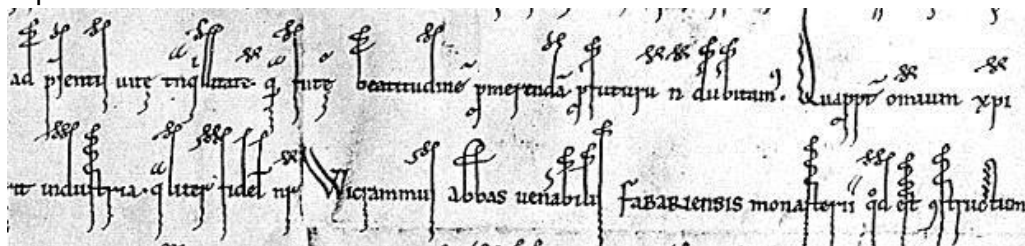 ad psentis vite tnqllitate q future beatitudine pmerenda pfuturu n dubitam Quappt omnium xpi
rit industria qliter fidel nr Wicrammus abbas venabilis FABARIENSIS monasterii qd est 9structum